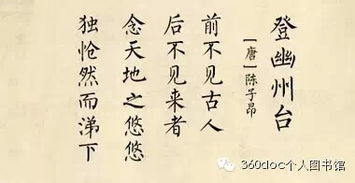 登幽州台
[唐]陈子昂
前不见古人
后不见来者
念天地之悠悠
独怆然而涕下
360doc个人图书馆